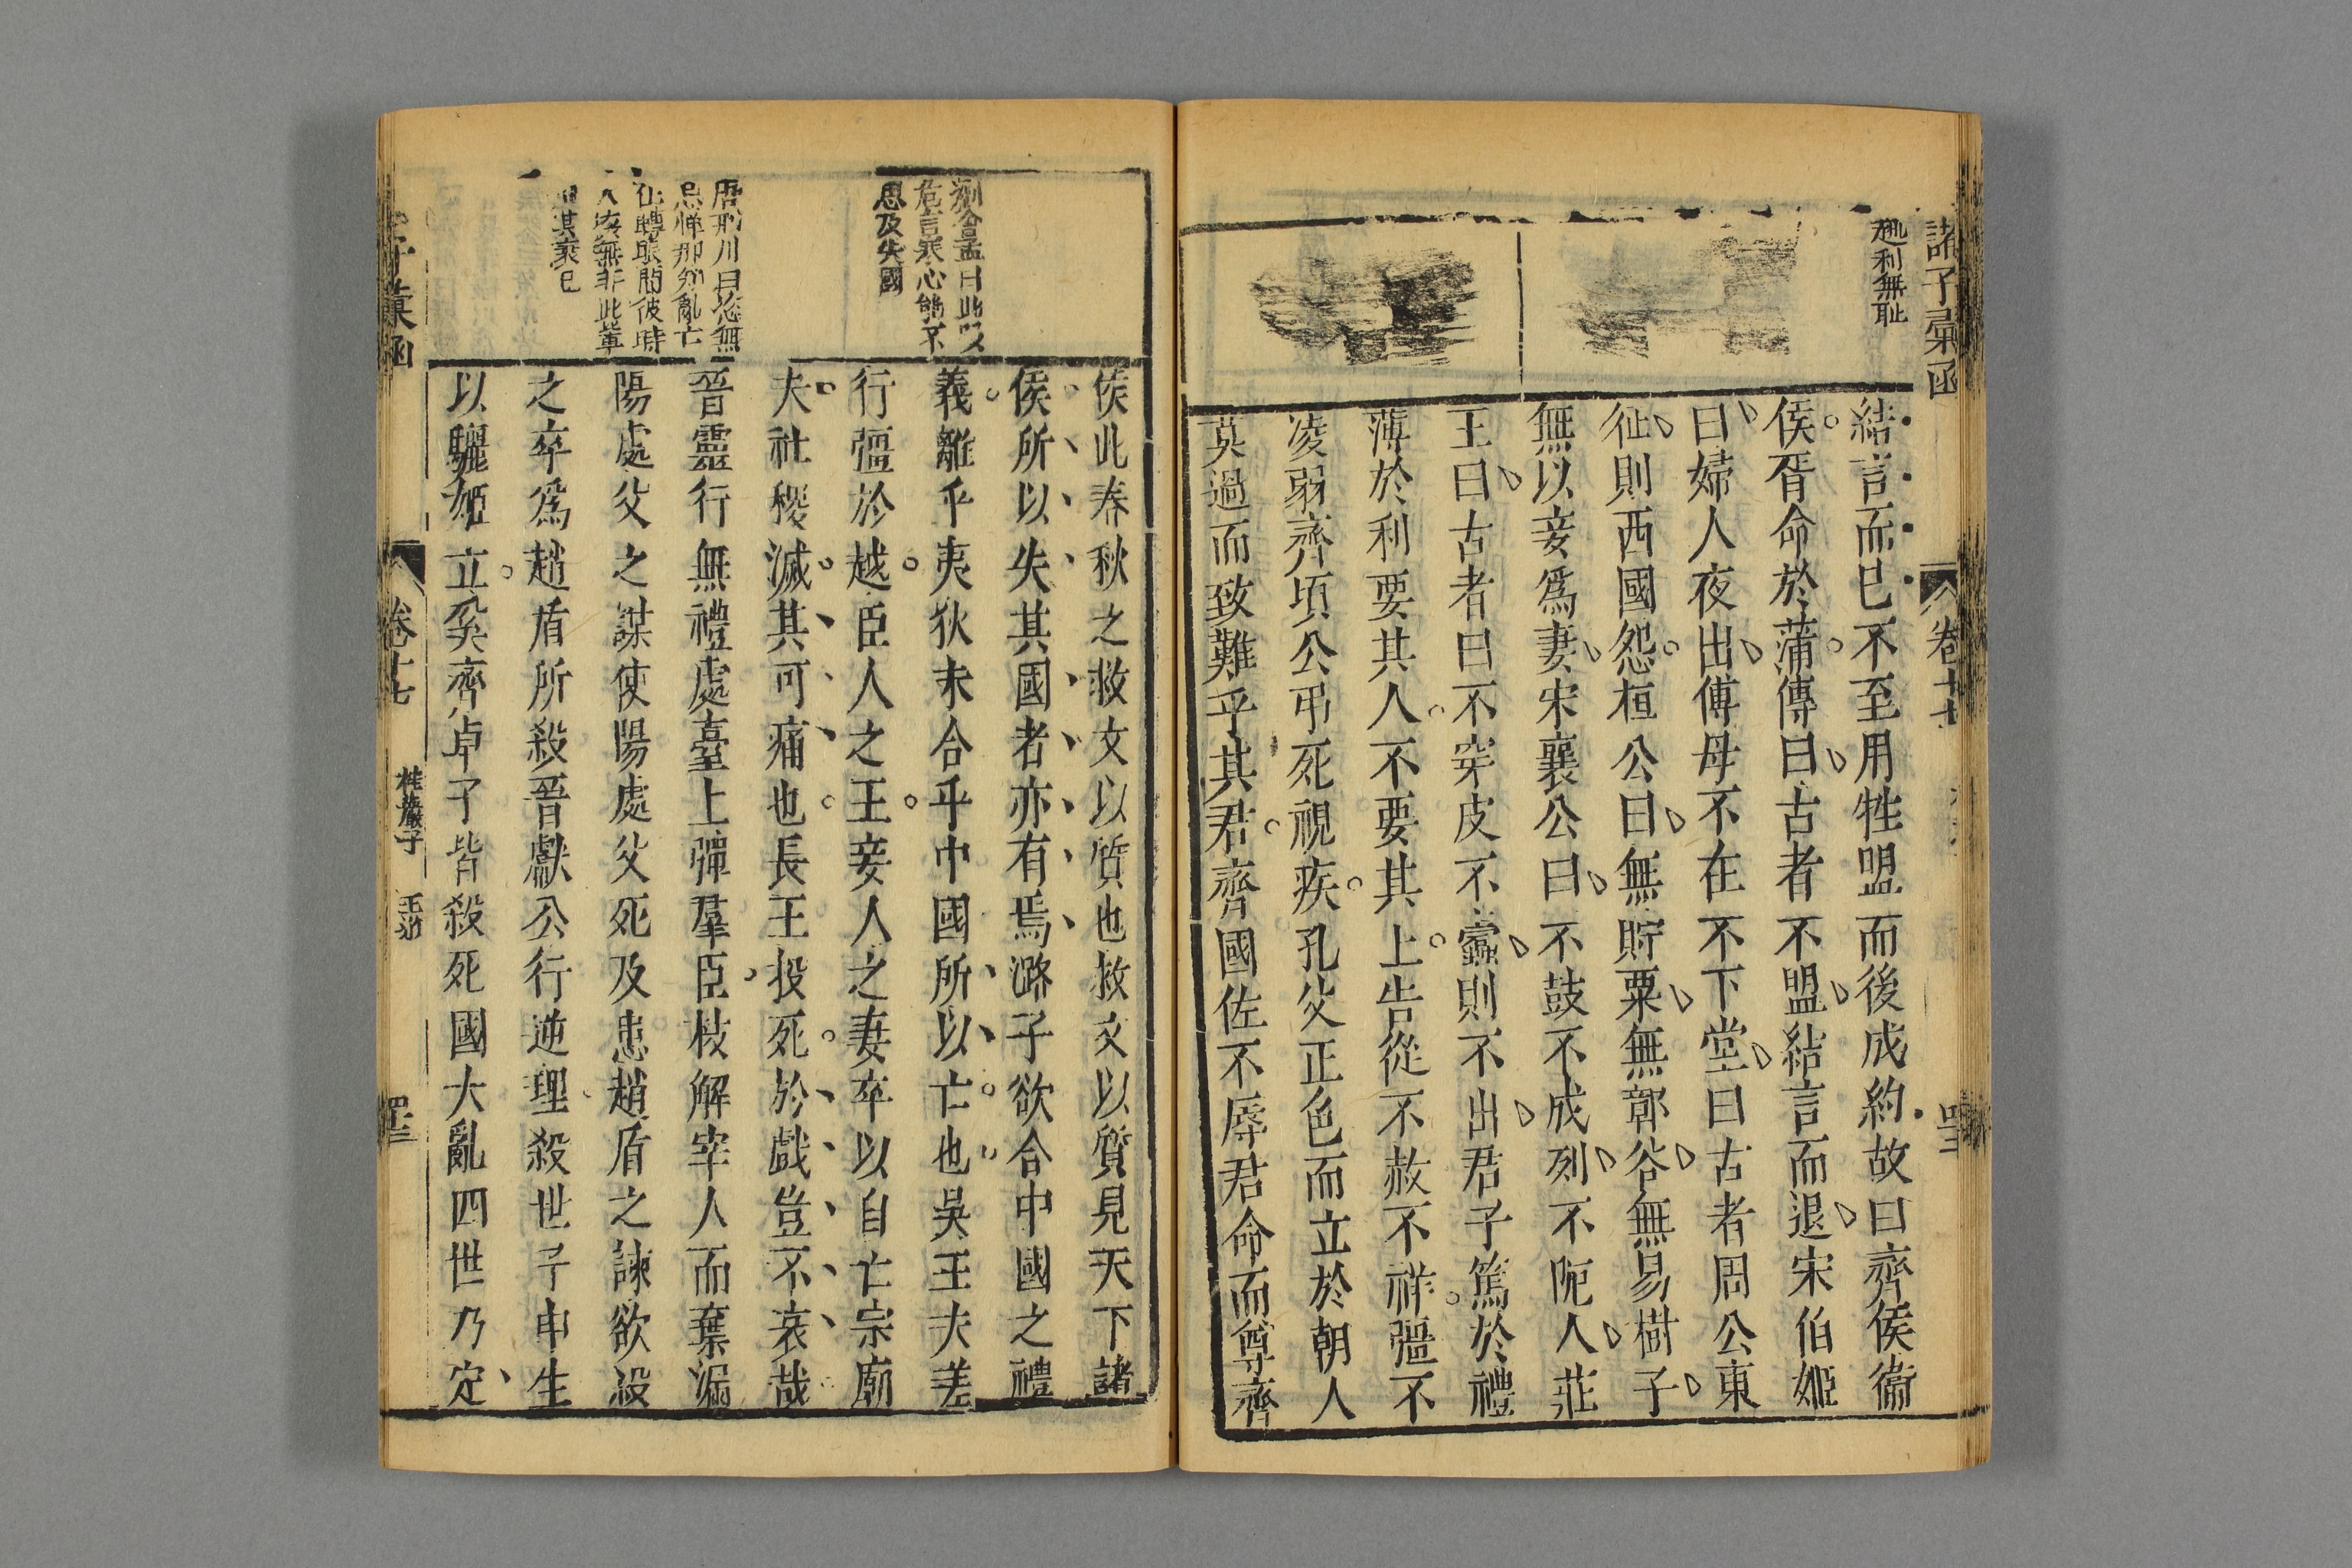 諸子彙函
卷十七
趨利無耻
結言而已不至用牲盟而後成約故曰齊侯衞
侯胥命於蒲傳曰古者不盟結言而退宋伯姬
曰婦人夜出傅母不在不下堂曰古者周公東
征則西國怨桓公曰無貯粟無鄣谷無易樹子
無以妾爲妻宋襄公曰不鼓不成列不阨人莊
王曰古者曰不穿皮不蠧則不出君子篤於禮
薄於利要其人不要其上告從不赦不祥彊不
凌弱齊頃公弔死視疾孔父正色而立於朝人
莫過而致難乎其君齊國佐不辱君命而尊齊
危言寒心能不
思及失國
唐荆川曰恣無
忌憚那知亂亡
在轉眼間彼時
侯此春秋之救文以質也救文以質見天下諸
侯所以失其國者亦有焉潞子欲合中國之禮
義離乎夷狄未合乎中國所以亡也吳王夫差
行彊於越臣人之王妾人之妻卒以自亡宗廟
夫社稷滅其可痛也長王投死於戲豈不哀哉
晉靈行無禮處臺上彈羣臣枝解宰人而棄漏
陽處父之謀使陽處父死及患趙盾之諫欲殺
之卒爲趙盾所殺晉獻公行逆理殺世子申生
以驪姬立奚齊卓子皆殺死國大亂四世乃定
子彙函
卷十七
桂巖子